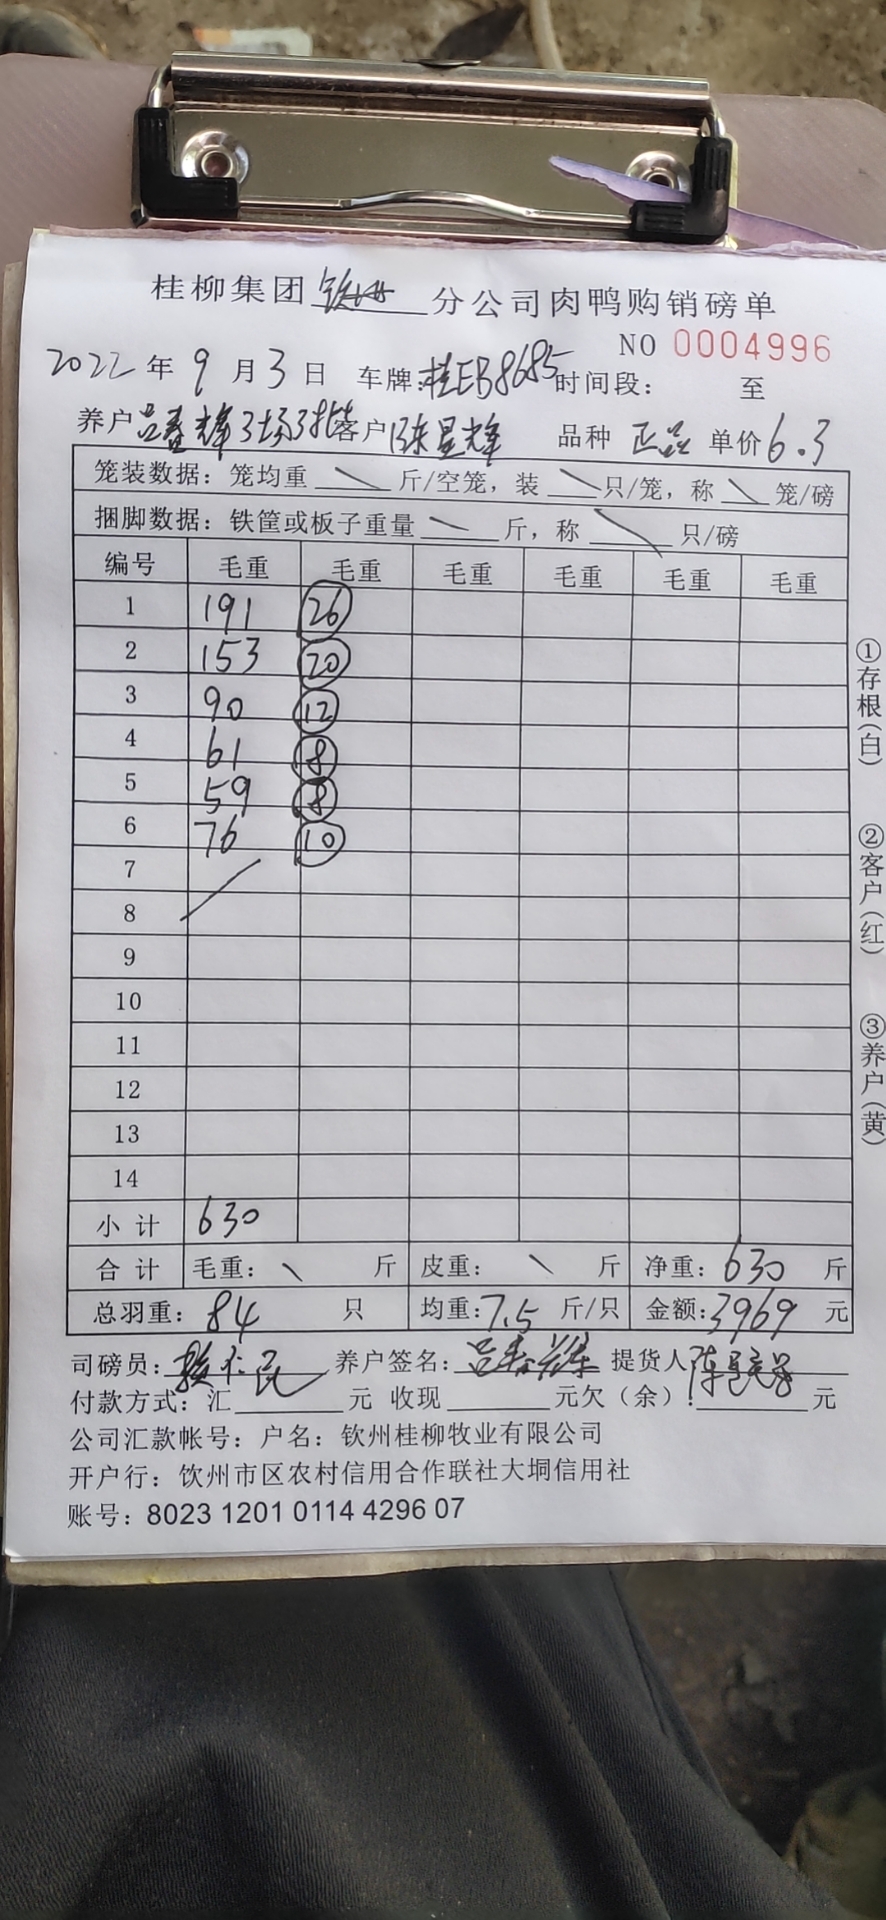 桂柳集团 钦州 分公司肉鸭购销磅单
NO 0004996
2022年9月3日 车牌:桂EB8685 时间段: 至
养户 吕春辉3场3批 客户 陈星辉 品种 正品 单价6.3
笼装数据:笼均重 \ 斤/空笼,装 \ 只/笼,称 \ 笼/磅
捆脚数据:铁筐或板子重量 \ 斤,称 \ 只/磅
编号 毛重 毛重 毛重 毛重 毛重 毛重
1 191 26
2 153 20
3 90 12
4 61 8
5 59 8
6 76 10
7
8
9
10
11
12
13
14
小计 630
合计 毛重: \ 斤 皮重: \ 斤 净重:630 斤
总羽重:84 只 均重:7.5 斤/只 金额:3969 元
司磅员: 养户签名:吕春辉 提货人:
付款方式:汇 元 收现 元欠(余): 元
公司汇款帐号:户名:钦州桂柳牧业有限公司
开户行:钦州市区农村信用合作联社大垌信用社
账号:8023 1201 0114 4296 07
①存根(白)
②客户(红)
③养户(黄)